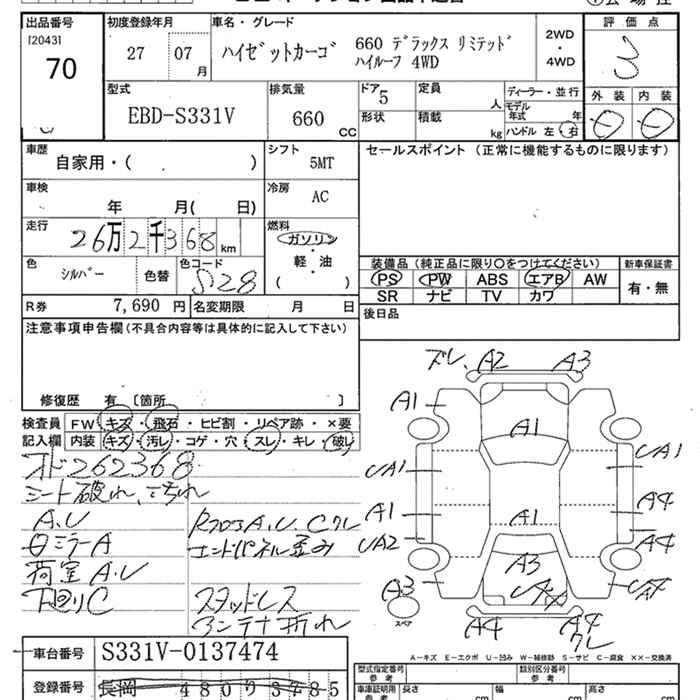 出品番号
[2043]
70
初度登録年月
27 07
月
車名・グレード
ハイゼットカーゴ
660 デラックス リミテッド
ハイルーフ 4WD
2WD
・
4WD
評価点
3
外装 内装
型式
EBD-S331V
排気量
660
CC
ドア
5
定員
人
形状
積載
kg
ディーラー・並行
モデル
年式 年
ハンドル 左 右
車歴
自家用・( )
シフト
5MT
セールスポイント (正常に機能するものに限ります)
車検
年 月( 日)
冷房
AC
走行
26万2千368 km
燃料
ガソリン
・
軽・油
( )
色
シルバー
色替
色コード
S28
装備品 (純正品に限り○をつけてください)
PS PW ABS エアB AW
SR ナビ TV カワ
新車保証書
有・無
R券 7,690 円
名変期限 月 日
後日品
注意事項申告欄 (不具合内容等は具体的に記入して下さい)
修復歴 有 〔箇所 〕
検査員
記入欄
FW キズ・飛石・ヒビ割・リペア跡・×要
内装 キズ・汚レ・コゲ・穴・スレ・キレ・破レ
オド262368
シート破れ、こすれ
A.U
ミラーA
荷室 A.U
下回りC
RフロアA.U.Cクレ
エンドパネル歪み
スタッドレス
アンテナ折れ
ズレ A2 A3
A1
A1
UA1
UA1
A1
A4
A1
UA2
A4
A3
A3
A4
A4
クレ
スペア
A－キズ E－エクボ U－凹み W－補修跡 S－サビ C－腐食 ××－交換済
車台番号
S331V-0137474
登録番号
長岡 480
型式指定番号
参考
類別区分番号
参考
車庫証明用
参考
長さ
cm
幅
cm
高さ
cm